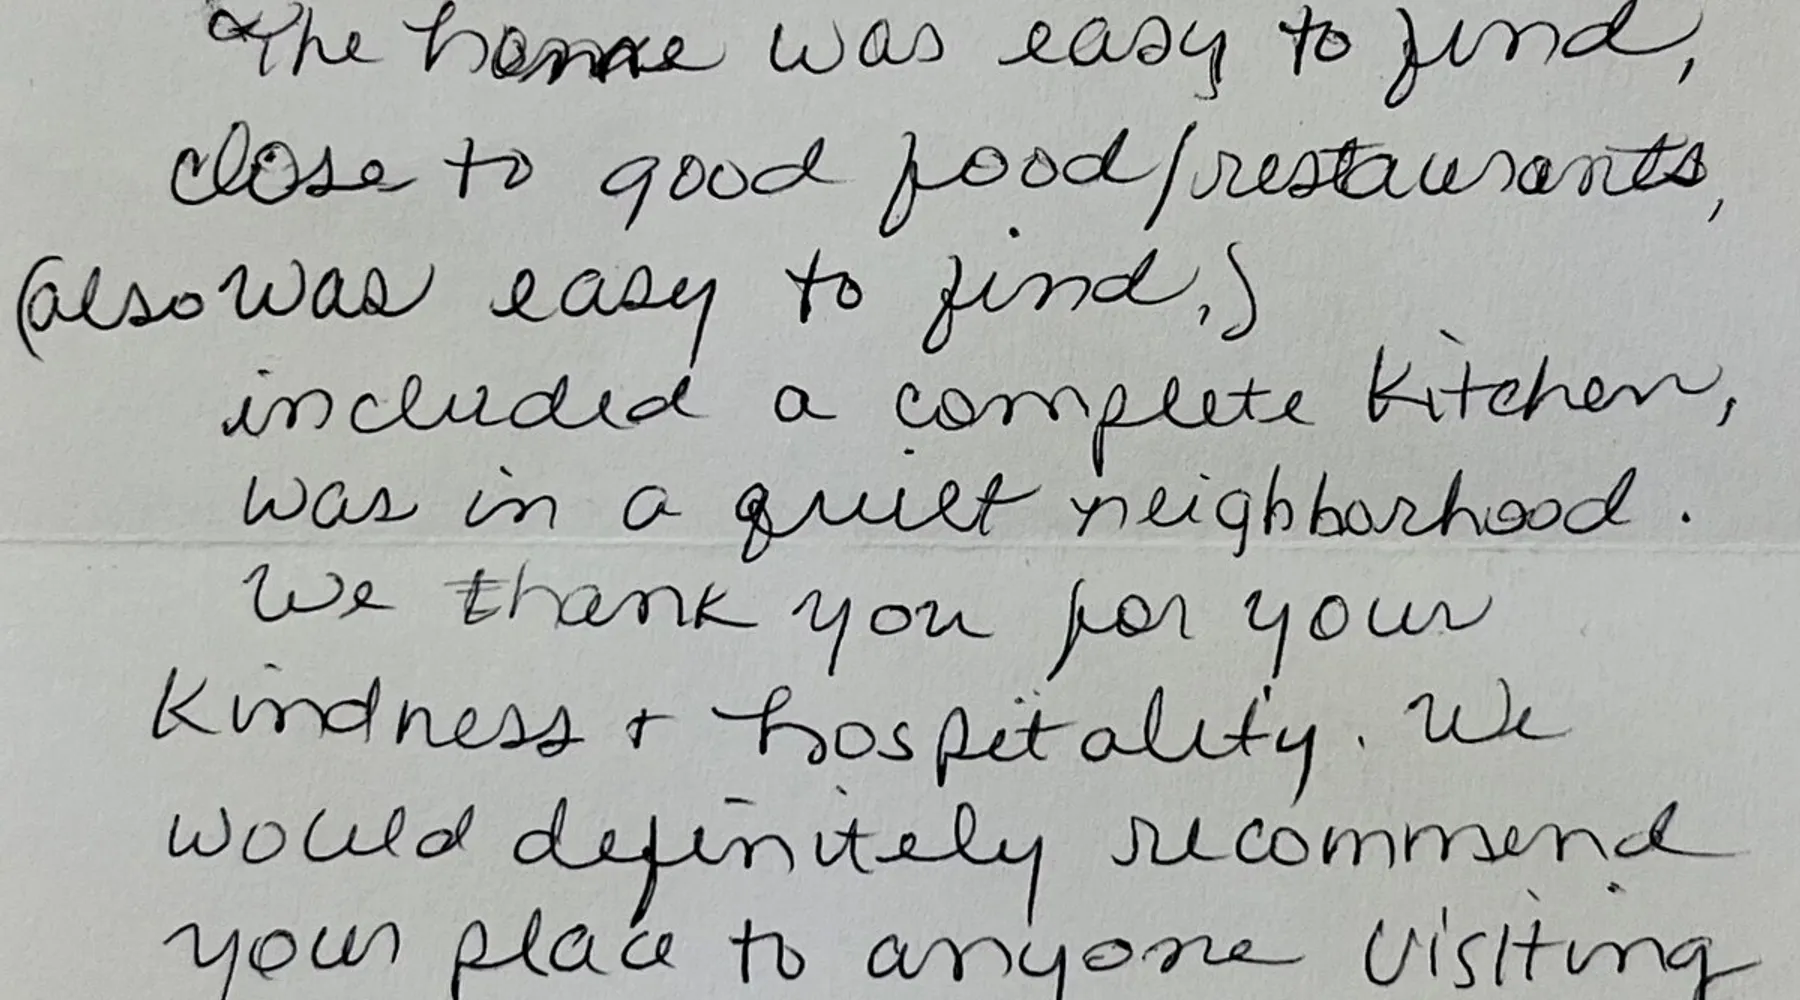 The home was easy to find,
close to good food/restaurants,
(also was easy to find,)
included a complete kitchen,
was in a quiet neighborhood.
We thank you for your
kindness + hospitality. We
would definitely recommend
your place to anyone visiting